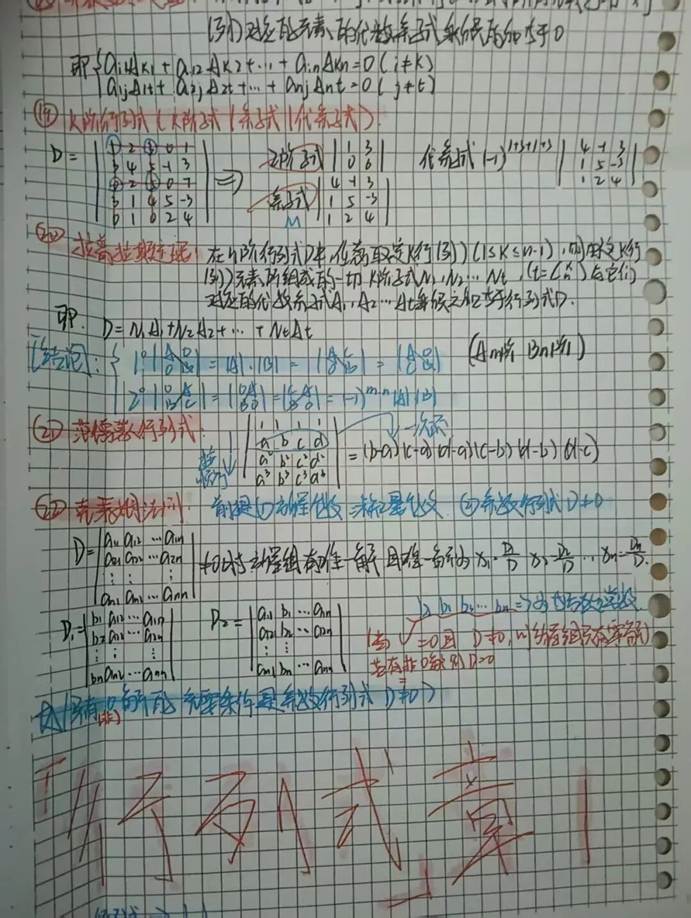 (列)对应的元素的代数余子式乘积的和等于0
即 { ai1Ak1 + ai2Ak2 + … + ainAkn = 0 (i≠k)
a1jA1t + a2jA2t + … + anjAnt = 0 (j≠t)
⑲ K阶行列式(K阶子式 | 余子式 | 代余子式)
D = | 1 2 3 0 1 |
| 3 4 5 -1 3 |
| 0 2 5 0 7 |
| 3 1 4 5 -3 |
| 0 1 0 2 4 |
⇒ 2阶子式 | 1 3 |
| 0 6 |
代余子式 (-1)^{1+3+1+3} | 4 -1 3 |
| 1 5 -3 |
| 1 2 4 |
余子式 | 4 -1 3 |
M | 1 5 -3 |
| 1 2 4 |
⑳ 拉普拉斯定理: 在n阶行列式D中,任意取定K行(列)(1≤K≤n-1),则由这K行
(列)元素所组成的一切K阶子式N1,N2…Nt,(t=C_n^k)与它们
对应的代数余子式A1,A2…At乘积之和等于行列式D.
即. D = N1A1 + N2A2 + … + NtAt
[结论]: { 1° |A 0; 0 B| = |A|·|B| = |A C; 0 B| = |A 0; C B| (Am阶 Bn阶)
2° |0 A; B C| = |0 A; B 0| = |C A; B 0| = (-1)^{m·n} |A| |B|
㉑ 范德蒙行列式 | 1 1 1 1 |
| a b c d | → 一次项
| a² b² c² d² | = (b-a)(c-a)(d-a)(c-b)(d-b)(d-c)
| a³ b³ c³ d³ |
㉒ 克莱姆法则: 前提① 方程个数 = 未知量个数 ② 系数行列式 D≠0
D = | a11 a12 … a1n |
| a21 a22 … a2n |
| ⋮ ⋮ ⋮ |
| an1 an2 … ann |
≠0时 方程组有唯一解 且唯一解为 x1 = D1/D x2 = D2/D … xn = Dn/D.
D1 = | b1 a12 … a1n |
| b2 a22 … a2n |
| ⋮ ⋮ ⋮ |
| bn an2 … ann |
D2 = | a11 b1 … a1n |
| a21 b2 … a2n |
| ⋮ ⋮ ⋮ |
| an1 bn … ann |
=0且 D≠0, 则方程组只有零解)
若有非0解则D=0
充要条件是系数行列式 D≠0)
「行列式」章